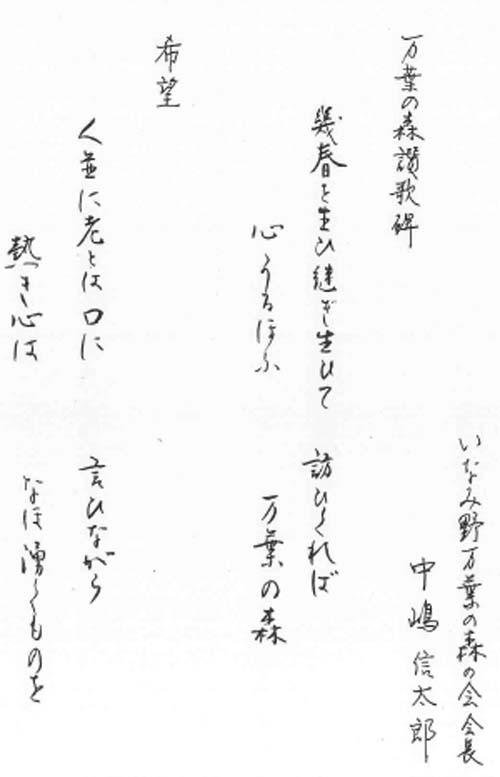 いなみ野万葉の森の会会長
中嶋信太郎
万葉の森讃歌碑
幾春を生ひ継ぎ生ひて 訪ひくれば
心うるほふ 万葉の森
希望
人並に老とは口に 言ひながら
熱き心は なほ湧くものを